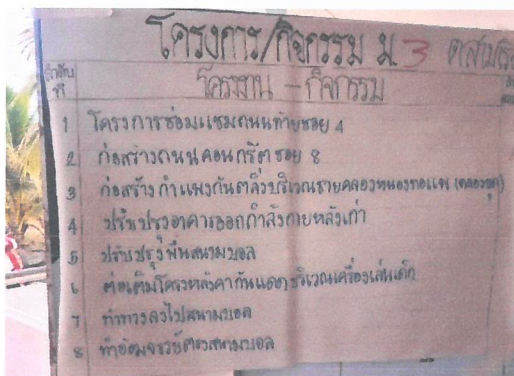 โครงการ/กิจกรรม ม 3
ลำดับ
ที่
โครงการ - กิจกรรม
1 โครงการซ่อมแซมถนนท้ายซอย 4
2 ก่อสร้างถนนคอนกรีตซอย 8
3 ก่อสร้างกำแพงกันตลิ่งบริเวณชายคลองหนองกอแพ (คลองขุด)
4 ปรับปรุงอาคารออกกำลังกายหลังเก่า
5 ปรับปรุงพื้นสนามบอล
6 ต่อเติมโครงหลังคากันแดดบริเวณเครื่องเล่นเด็ก
7 ทำทางลงไปสนามบอล
8 สนามบอล